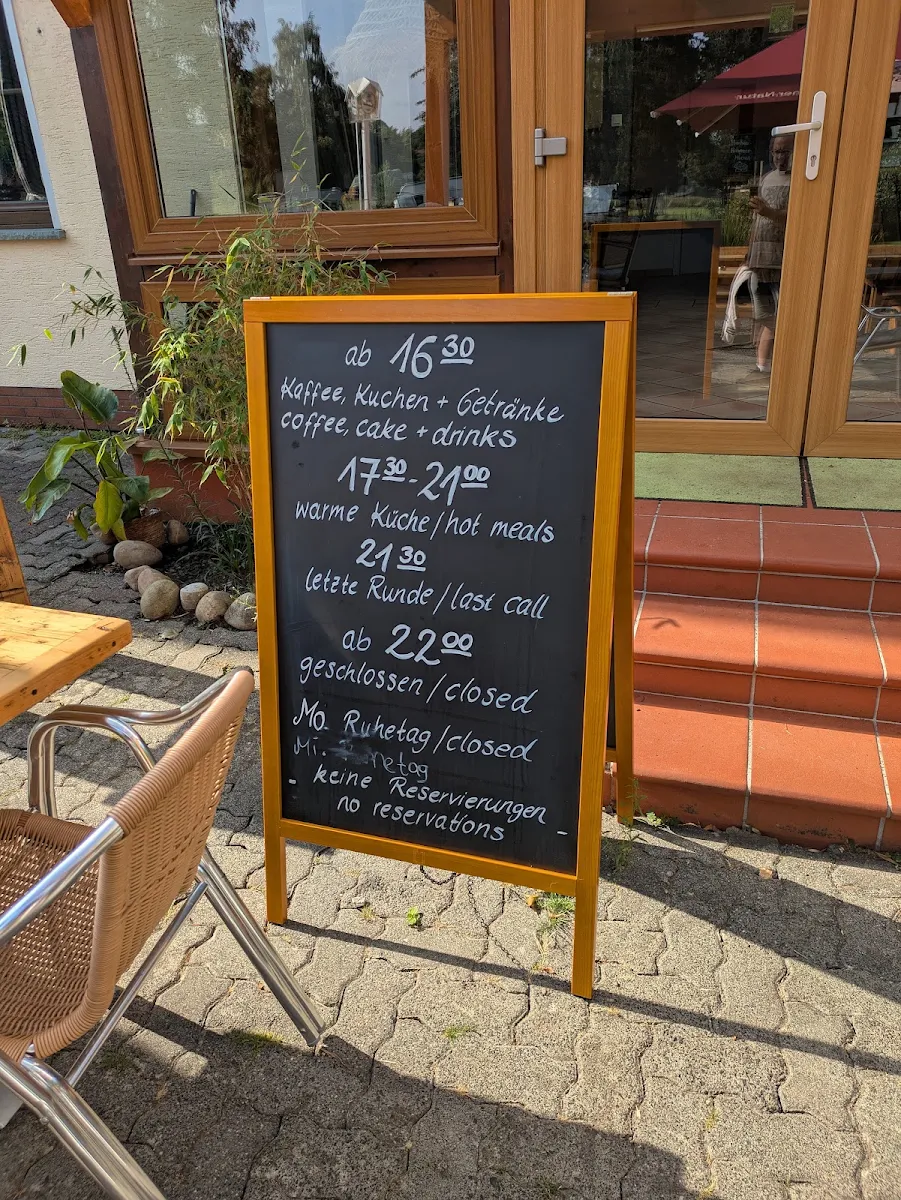 ab 16 30
Kaffee, Kuchen + Getränke
coffee, cake + drinks
17 30 - 21 00
warme Küche/hot meals
21 30
letzte Runde/last call
ab 22 00
geschlossen/closed
Mo. Ruhetag/closed
Mi.
- keine Reservierungen
no reservations -